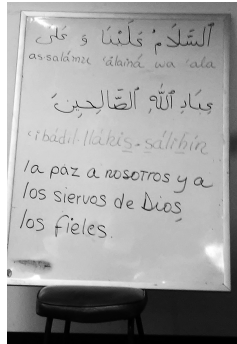 اَلسَّلَامُ عَلَيْنَا وَ عَلَى
as-salámu 'alainá wa 'ala
عِبَادِ اللّٰهِ الصَّالِحِينَ
'ibádil-lláhis-sálihín
la paz a nosotros y a
los siervos de Dios,
los fieles.